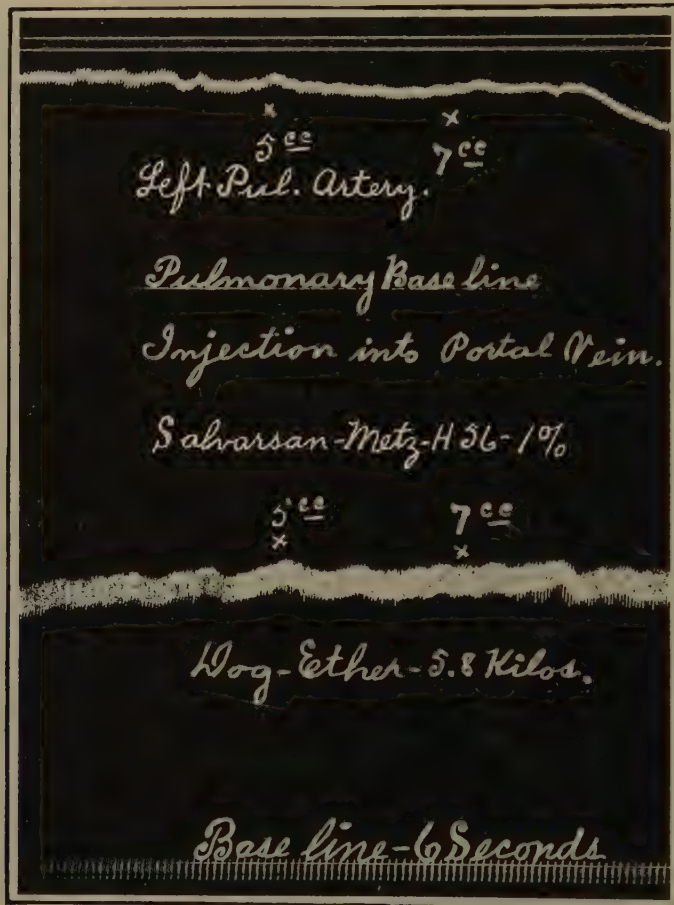 x x
5 cc 7 cc
Left Pul. Artery.
Pulmonary Base line
Injection into Portal Vein.
Salvarsan-Metz-H 56-1%
5 cc 7 cc
x x
Dog-Ether-5.8 Kilos.
Base line-6 Seconds